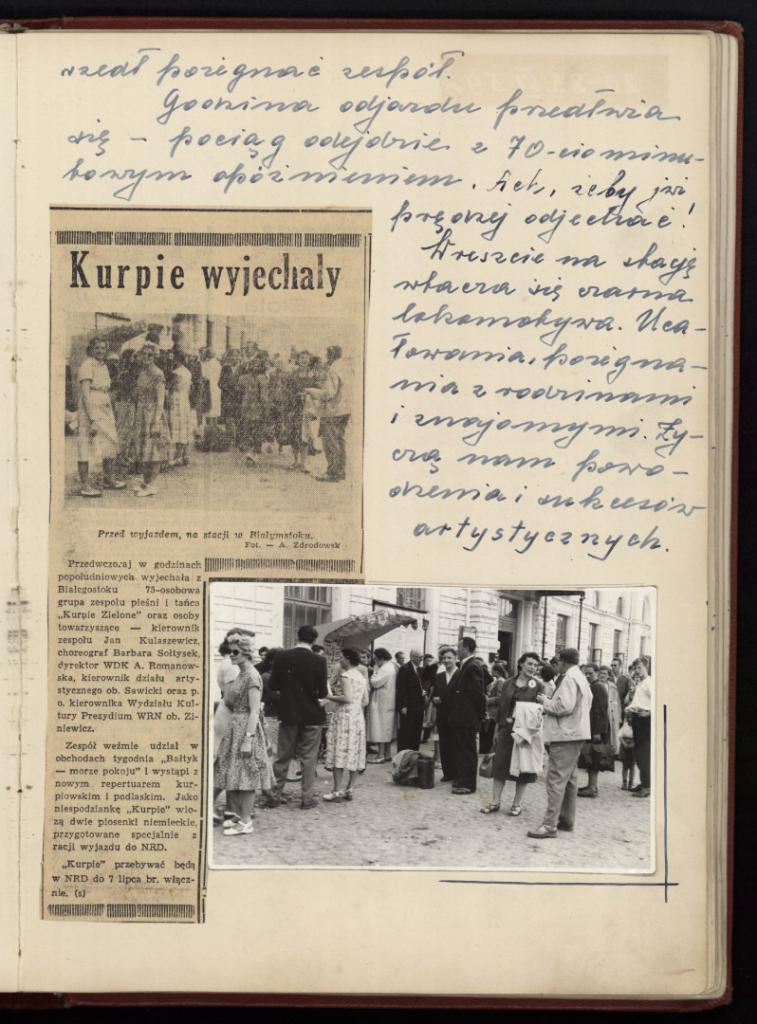 wzedł pożegnać zespół.
Godzina odjazdu przedłuża
się – pociąg odejdzie z 70-cio minu-
towym opóźnieniem. Ach, żeby już
prędzej odjechać!
Wreszcie na stację
wtacza się czarna
lokomotywa. Uca-
łowania, pożegna-
nia z rodzinami
i znajomymi. Ży-
czą nam powo-
dzenia i sukcesów
artystycznych.
Kurpie wyjechały
Przed wyjazdem, na stacji w Białymstoku.
Fot. — A. Zdrodowsk
Przedwczoraj w godzinach
popołudniowych wyjechała z
Białegostoku 75-osobowa
grupa zespołu pieśni i tańca
„Kurpie Zielone" oraz osoby
towarzyszące — kierownik
zespołu Jan Kulaszewicz,
choreograf Barbara Sołtysek,
dyrektor WDK A. Romanow-
ska, kierownik działu arty-
stycznego ob. Sawicki oraz p.
o. kierownika Wydziału Kul-
tury Prezydium WRN ob. Zi-
niewicz.
Zespół weźmie udział w
obchodach tygodnia „Bałtyk
— morze pokoju" i wystąpi z
nowym repertuarem kur-
piowskim i podlaskim. Jako
niespodziankę „Kurpie" wio-
zą dwie piosenki niemieckie,
przygotowane specjalnie z
racji wyjazdu do NRD.
„Kurpie" przebywać będą
w NRD do 7 lipca br. włącz-
nie. (s)